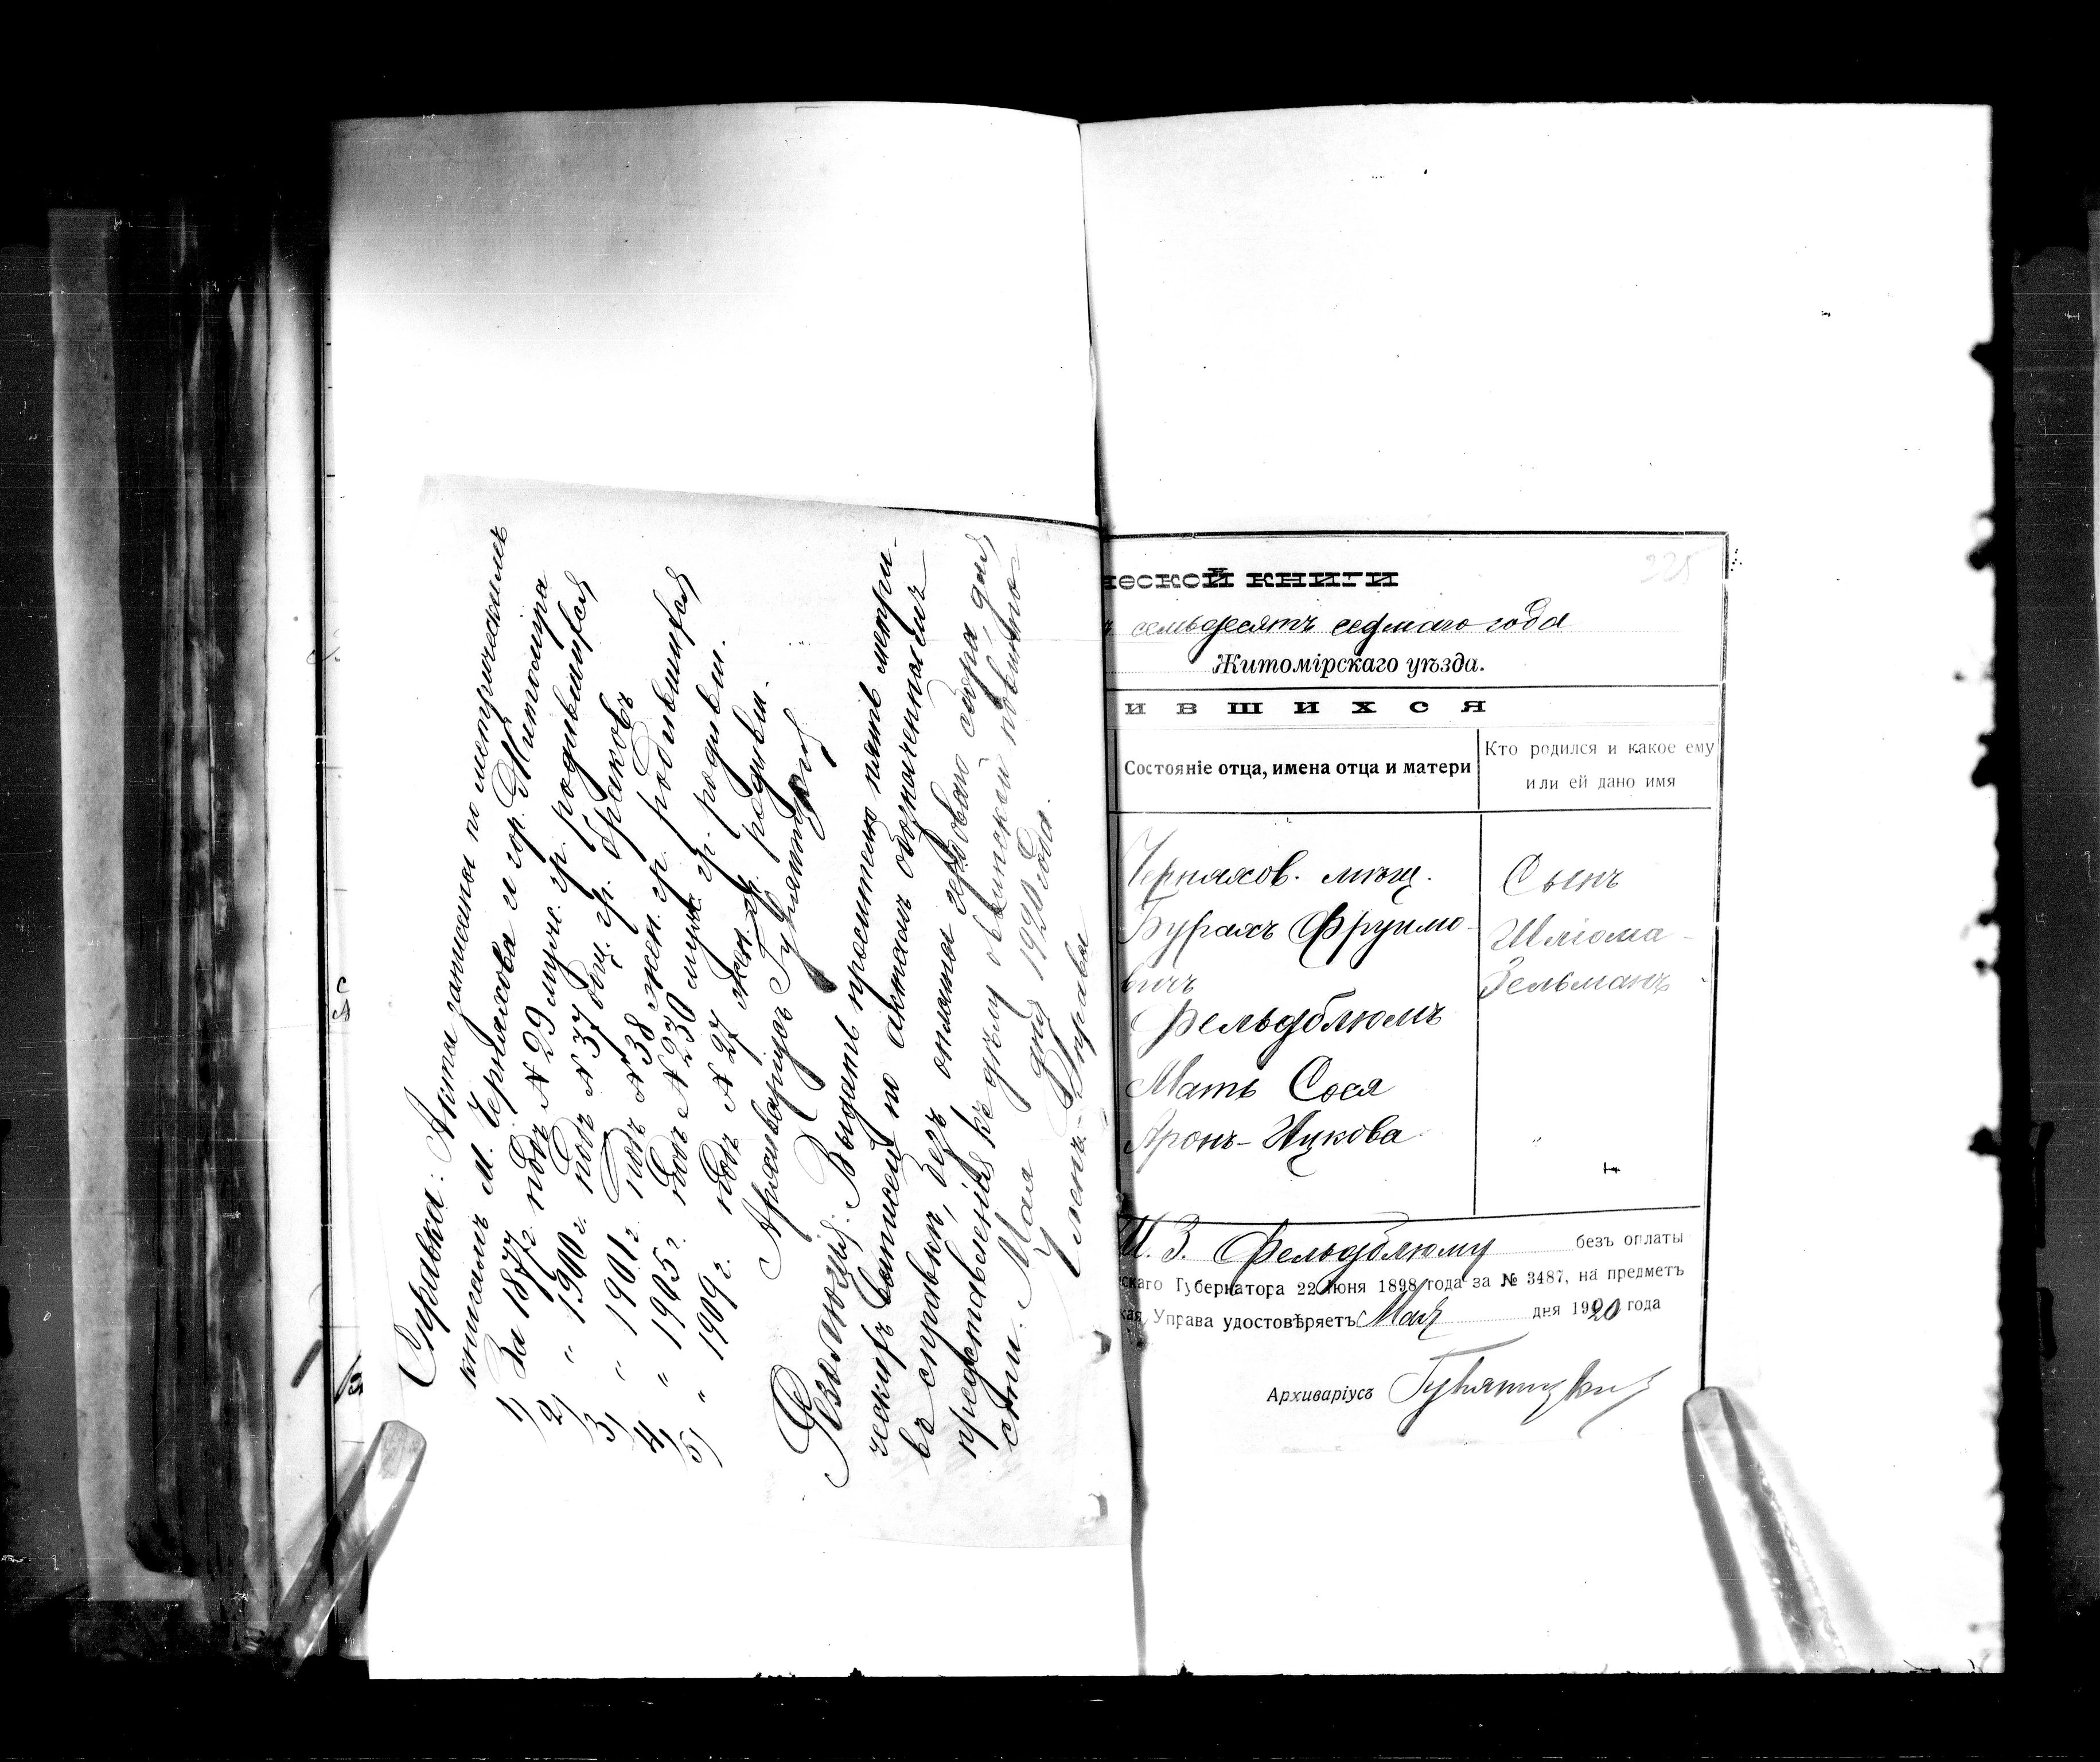 Справка: Акты записаны по метрическимъ
книгамъ м. Черняхова и гор. Житомира
1) За 1877 г. подъ № 29 муж. гр. родившихся
2) " 1900 г. подъ № 37 общ. гр. браковъ
3) " 1901 г. подъ № 38 жен. гр. родившихся
4) " 1905 г. подъ № 230 муж. гр. родивш.
5) " 1909 г. подъ № 27 жен. гр. родивш.
Архиваріусъ Гувнятцкій
Резолюція: Выдать просителю пять метри-
ческихъ выписей по актамъ обозначеннымъ
въ справкѣ, безъ оплаты герб. сбора, для
представленія къ дѣлу о воинской повинно-
сти. Мая дня 1920 года.
Членъ Управы
225
ческой книги
ъ семьдесятъ седмаго года
Житомірскаго уѣзда.
ИВШИХСЯ
Состояніе отца, имена отца и матери
Кто родился и какое ему
или ей дано имя
Черняхов. мѣщ.
Бурахъ Фруимо-
вичъ
Фельдблюмъ
Мать Сося
Аронъ-Ицкова
Сынъ
Шліома-
Зельманъ
Ш. З. Фельдблюму безъ оплаты
скаго Губернатора 22 Іюня 1898 года за № 3487, на предметъ
кая Управа удостовѣряетъ Мая дня 1920 года
Архиваріусъ